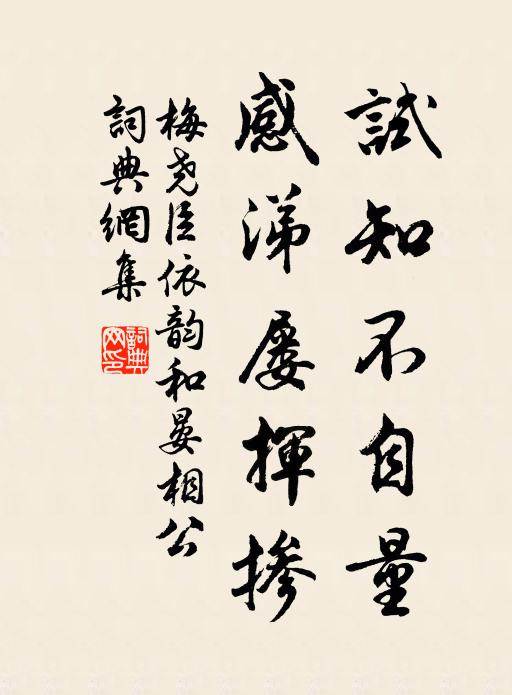 試知不自量
感涕屡揮掺
梅尧臣依韵和晏相公
詞典網集
詞典
网印